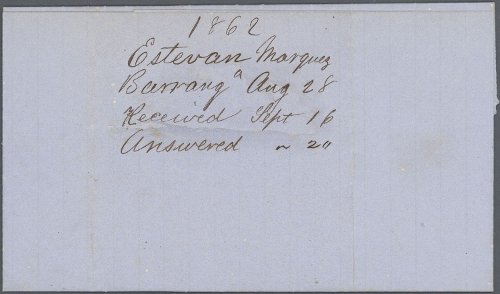 1862
Estevan Marquez
Barranqª Aug 28
Received Sept 16
Answered ~ 20